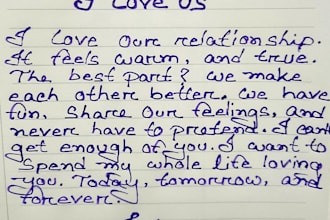 I Love Us
I love our relationship.
It feels warm, and true.
The best part? we make
each other better. we have
fun, share our feelings, and
never have to pretend. I can't
get enough of you. I want to
spend my whole life loving
you. Today, tomorrow, and
forever.